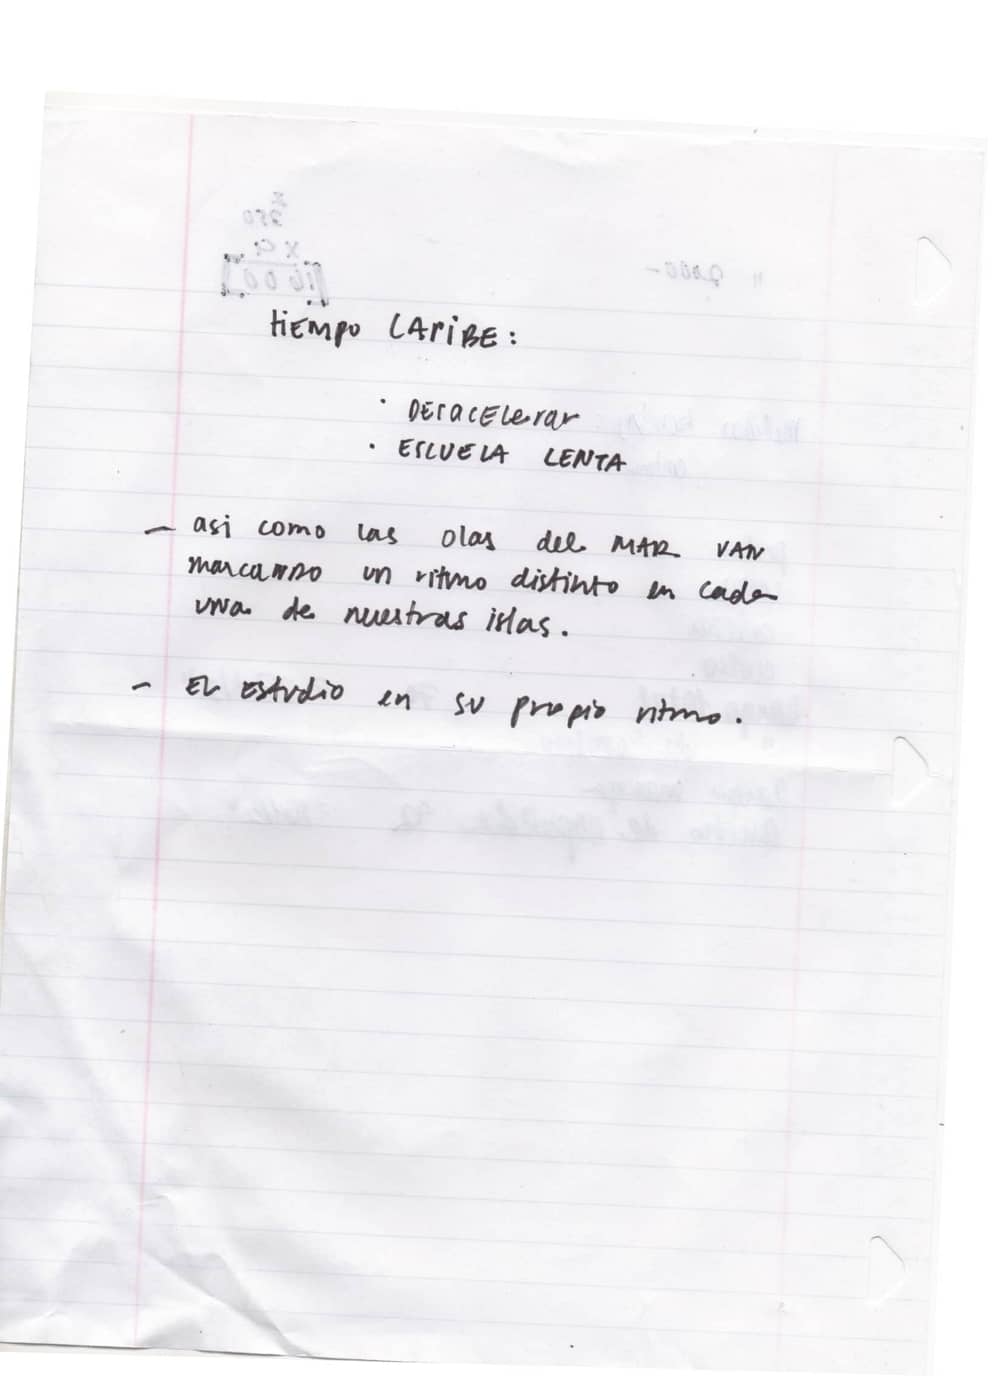 tiempo CAribe:
· Desacelerar
· ESCUELA LENTA
– asi como las olas del MAR VAN
marcando un ritmo distinto en cada
una de nuestras islas.
– El Estudio en su propio ritmo.